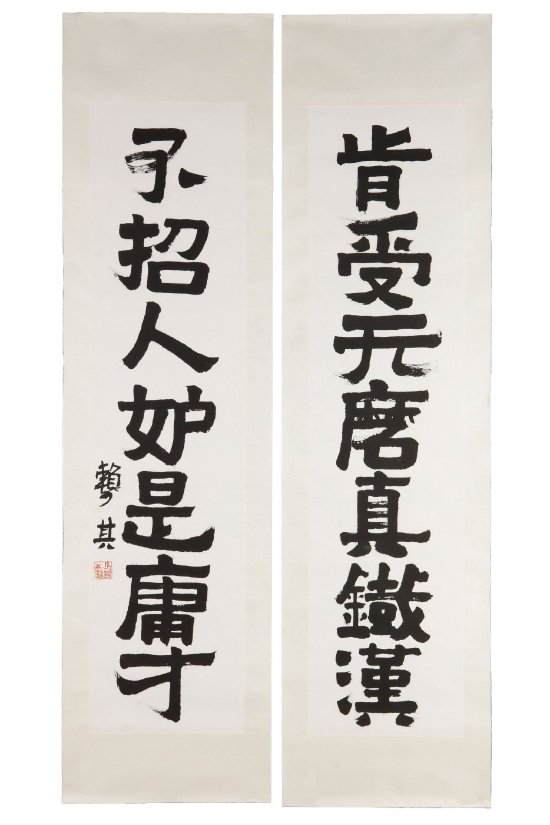 肯受天磨真鐵漢
不招人妒是庸才
賴少其